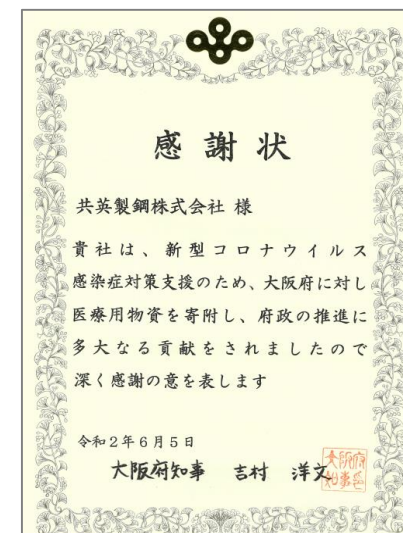 感謝状
共英製鋼株式会社 様
貴社は、新型コロナウイルス
感染症対策支援のため、大阪府に対し
医療用物資を寄附し、府政の推進に
多大なる貢献をされましたので
深く感謝の意を表します
令和2年6月5日
大阪府知事 吉村 洋文
大阪府
知事印